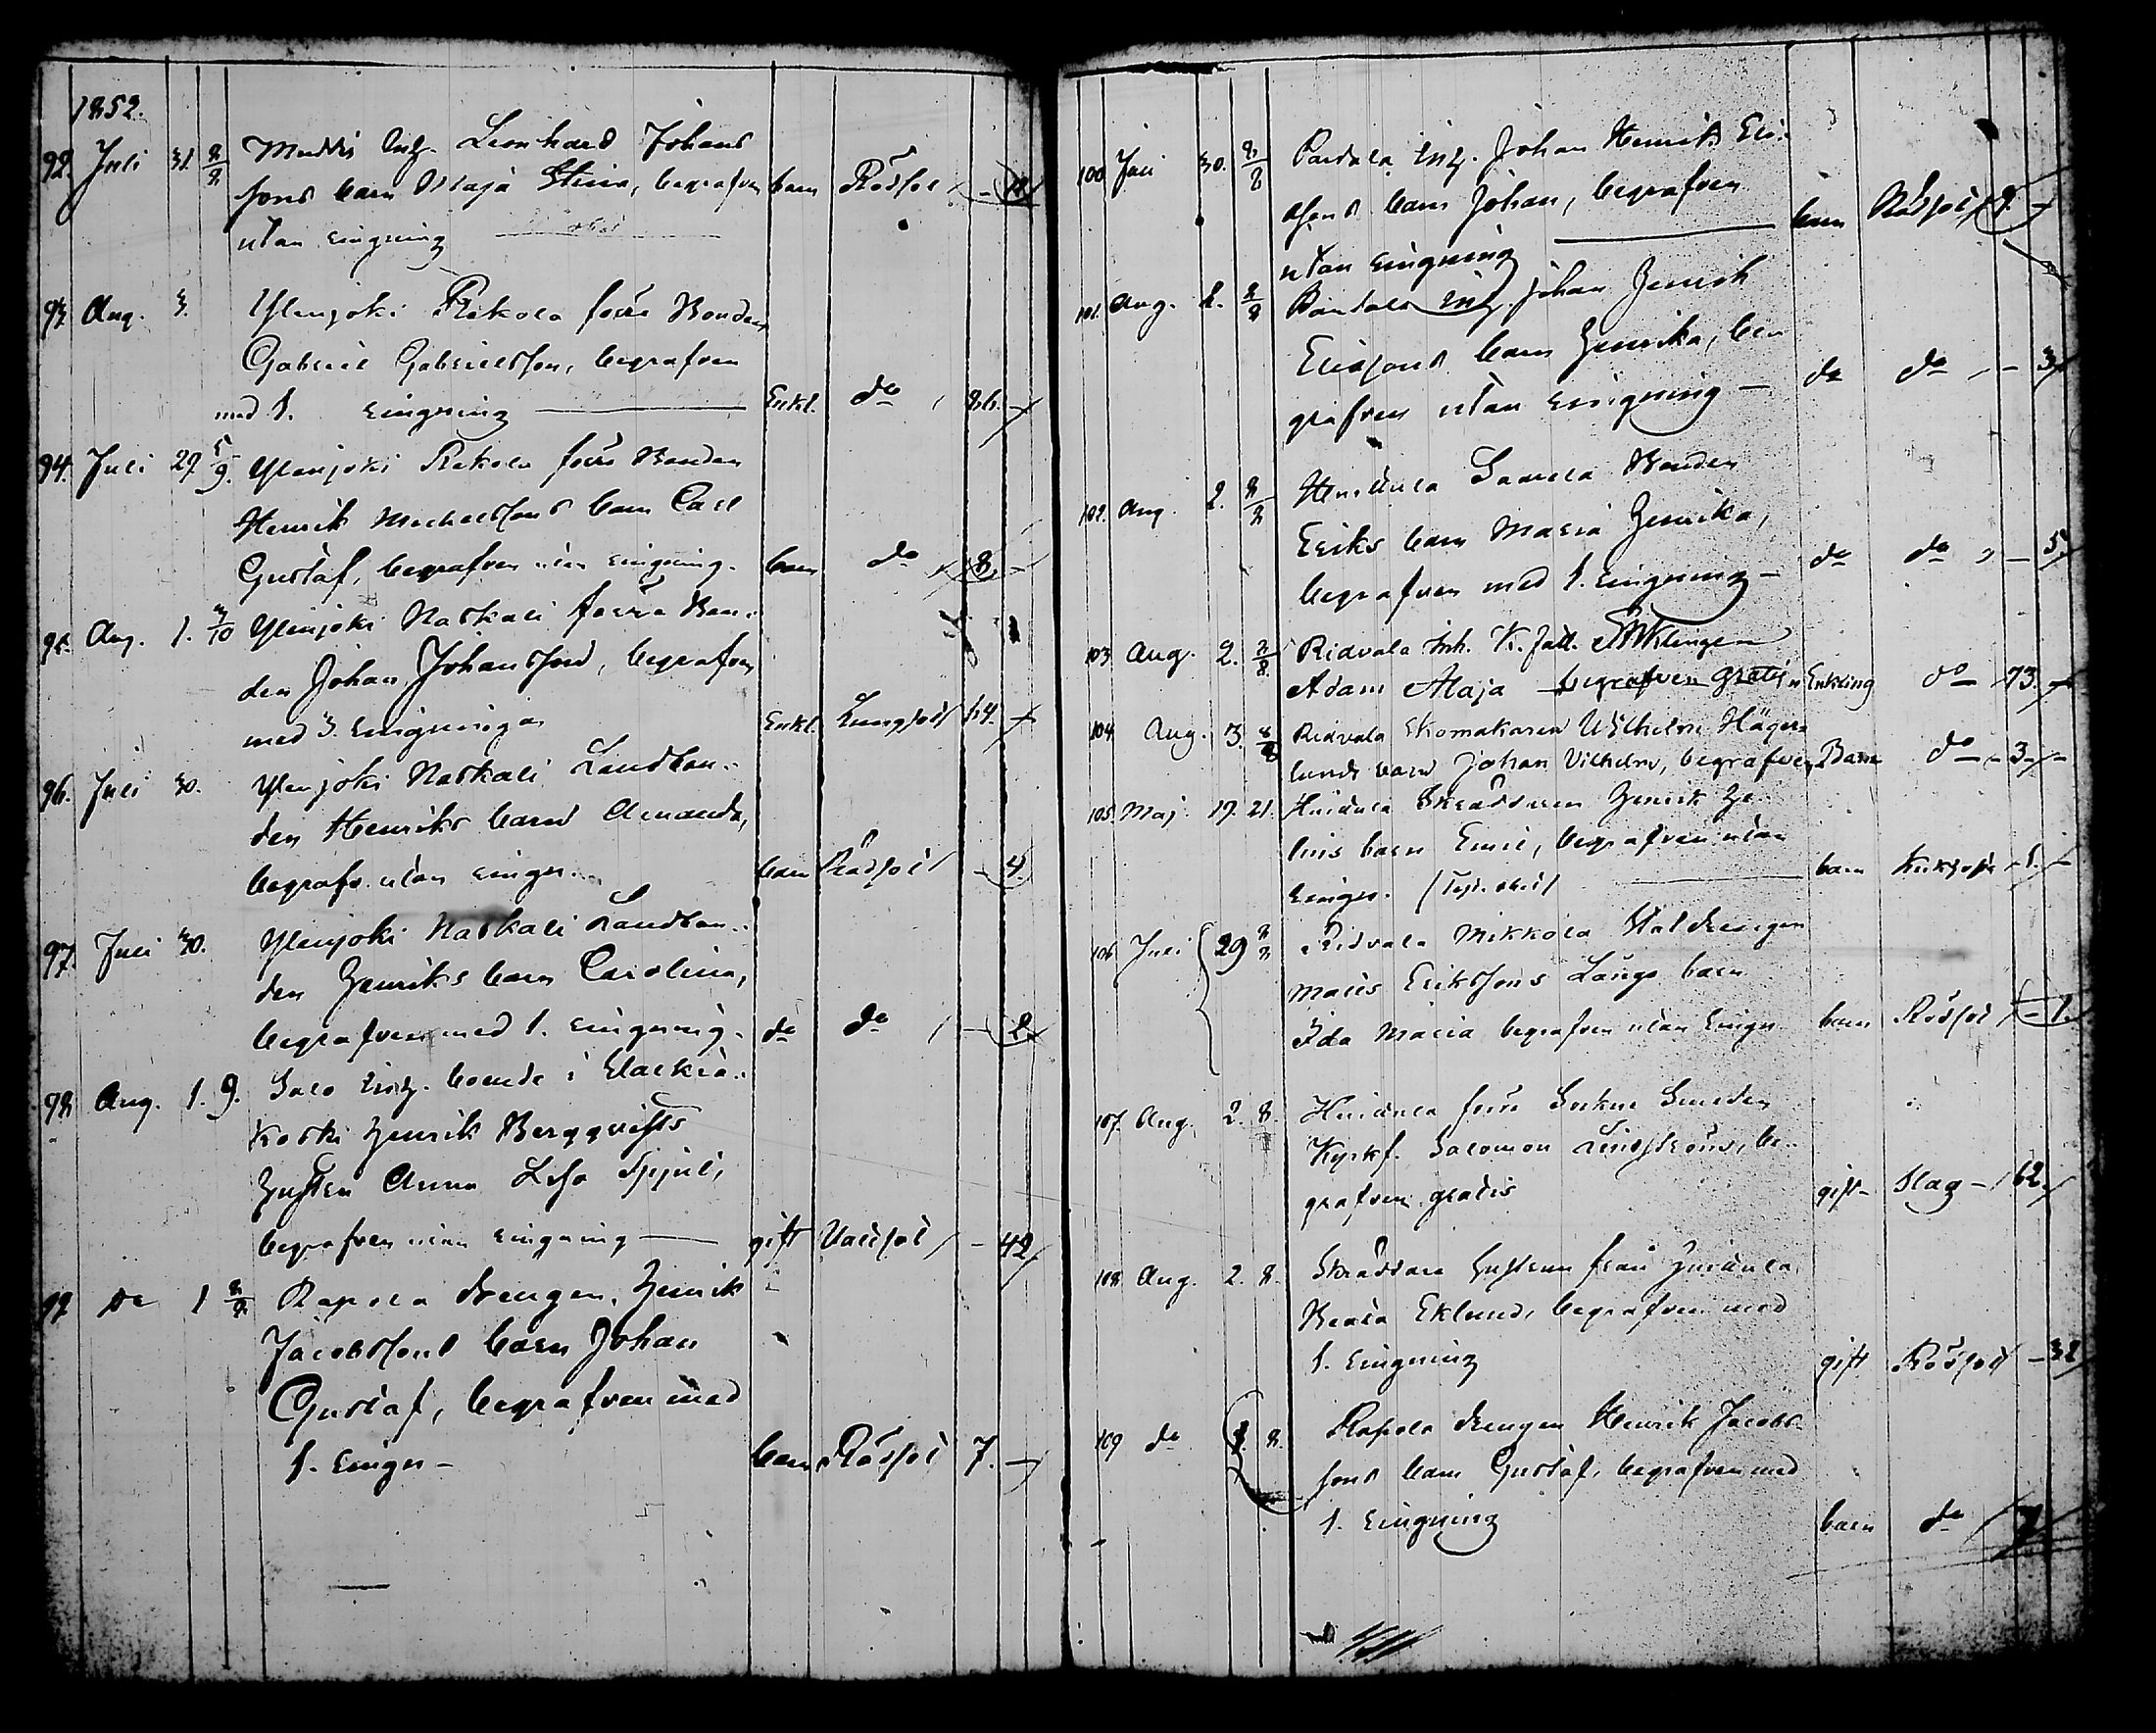 1852.
92. Juli 31. 8/8 Muddis Inh. Leonhard Johans
sons barn Maja Stina, begrafven barn Rödsot
utan ringning
93. Aug. 3. Ylenjoki Rekola förre Bonden
Gabriel Gabrielsson, begrafven
med 1. ringning Enkl. do 86. -
94. Juli 29 Ylenjoki Rekola förre Bonden
Henrik Michelssons barn Carl
Gustaf, begrafven utan ringning. barn do 8. -
95. Aug. 1. Ylenjoki Naskali förre Bon-
den Johan Johansson, begrafven
med 3. ringningar Enkl. Lungsot 64. -
96. Juli 30. Ylenjoki Naskali Landbon-
den Henriks barn Amanda,
begrafv. utan ringn. barn Rödsot - 4.
97. Juli 30. Ylenjoki Naskali Landbon-
den Henriks barn Carolina,
begrafven med 1. ringning. do do - 2.
98. Aug. 1. 9. Salo Inh. boende i
Koski Henrik Bergqvists
hustru Anna Lisa
begrafven utan ringning gift - 42
99. do 1 8/8 Rapola drengen Henrik
Jacobssons barn Johan
Gustaf, begrafven med
1. ringn - barn Rödsot 7. -
100. Juli 30. 8/8 Inh. Johan Henrik Eri-
cssons barn Johan, begrafven
utan ringning barn Rödsot 9. -
101. Aug. 2. 8/8 Inh. Johan Henrik
Ericssons barn Henrika, be
grafven utan ringning - do do - 3
102. Aug. 2. 8/8 Bonden
Eriks barn Maria Henrika,
begrafven med 1. ringning - do do - 5
103 Aug. 2. 8/8. Ridvala Inh. K. fatt. Enklingen
Adam Maja begrafven gratis Enkling do 73. -
104 Aug. 3. 8/8 Ridvala Skomakaren Wilhelm Häger-
lunds barn Johan Vilhelm, begrafven Barn do - 3 -
105. Maj. 19. 21. Skräddaren Henrik
barn Emil, begrafven utan
ringn. barn Kikhosta - 1. -
106 Juli 29 8/8 Ridvala Mikkola Stalldrengen
Matts Erikssons Långs barn
Ida Maria begrafven utan ringn barn Rödsot - 1.
107. Aug. 2. 8. förre Smeden
Salomon Lindström, be-
grafven gratis gift Slag - 62.
108. Aug. 2. 8. Skräddare hustrun från
Beata Eklund, begrafven med
1. ringning gift Rödsot - 32
109 do 8. Rapola drengen Henrik Jacobs-
sons barn Gustaf, begrafven med
1. ringning barn do 7